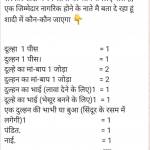 एक जिम्मेदार नागरिक होने के नाते मै बता दे रहा हूं
शादी में कौन-कौन जाएगा 👇
दूल्हा 1 पीस = 1
दुल्हन 1 पीस। = 1
दूल्हे का मां-बाप 1 जोड़ा = 2
दुल्हन का मां-बाप 1 जोड़ा = 2
दुल्हन का भाई (लावा देने के लिए)1 = 1
दूल्हे का भाई (भेसुर बनने के लिए)1 = 1
एक दुल्हन की भाभी या बुआ (सिंदूर के रसम में
लगेगी)1 = 1
पंडित. = 1
नाई. = 1